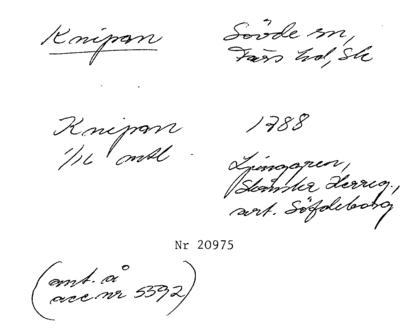 Knipan
Sövde sn,
Färs hd, Sk
Knipan
1788
1/16 mtl
Ljunggren,
Skånska Herreg.,
art. Söfdeborg
Nr 20975
(ant. å
acc nr 5592)